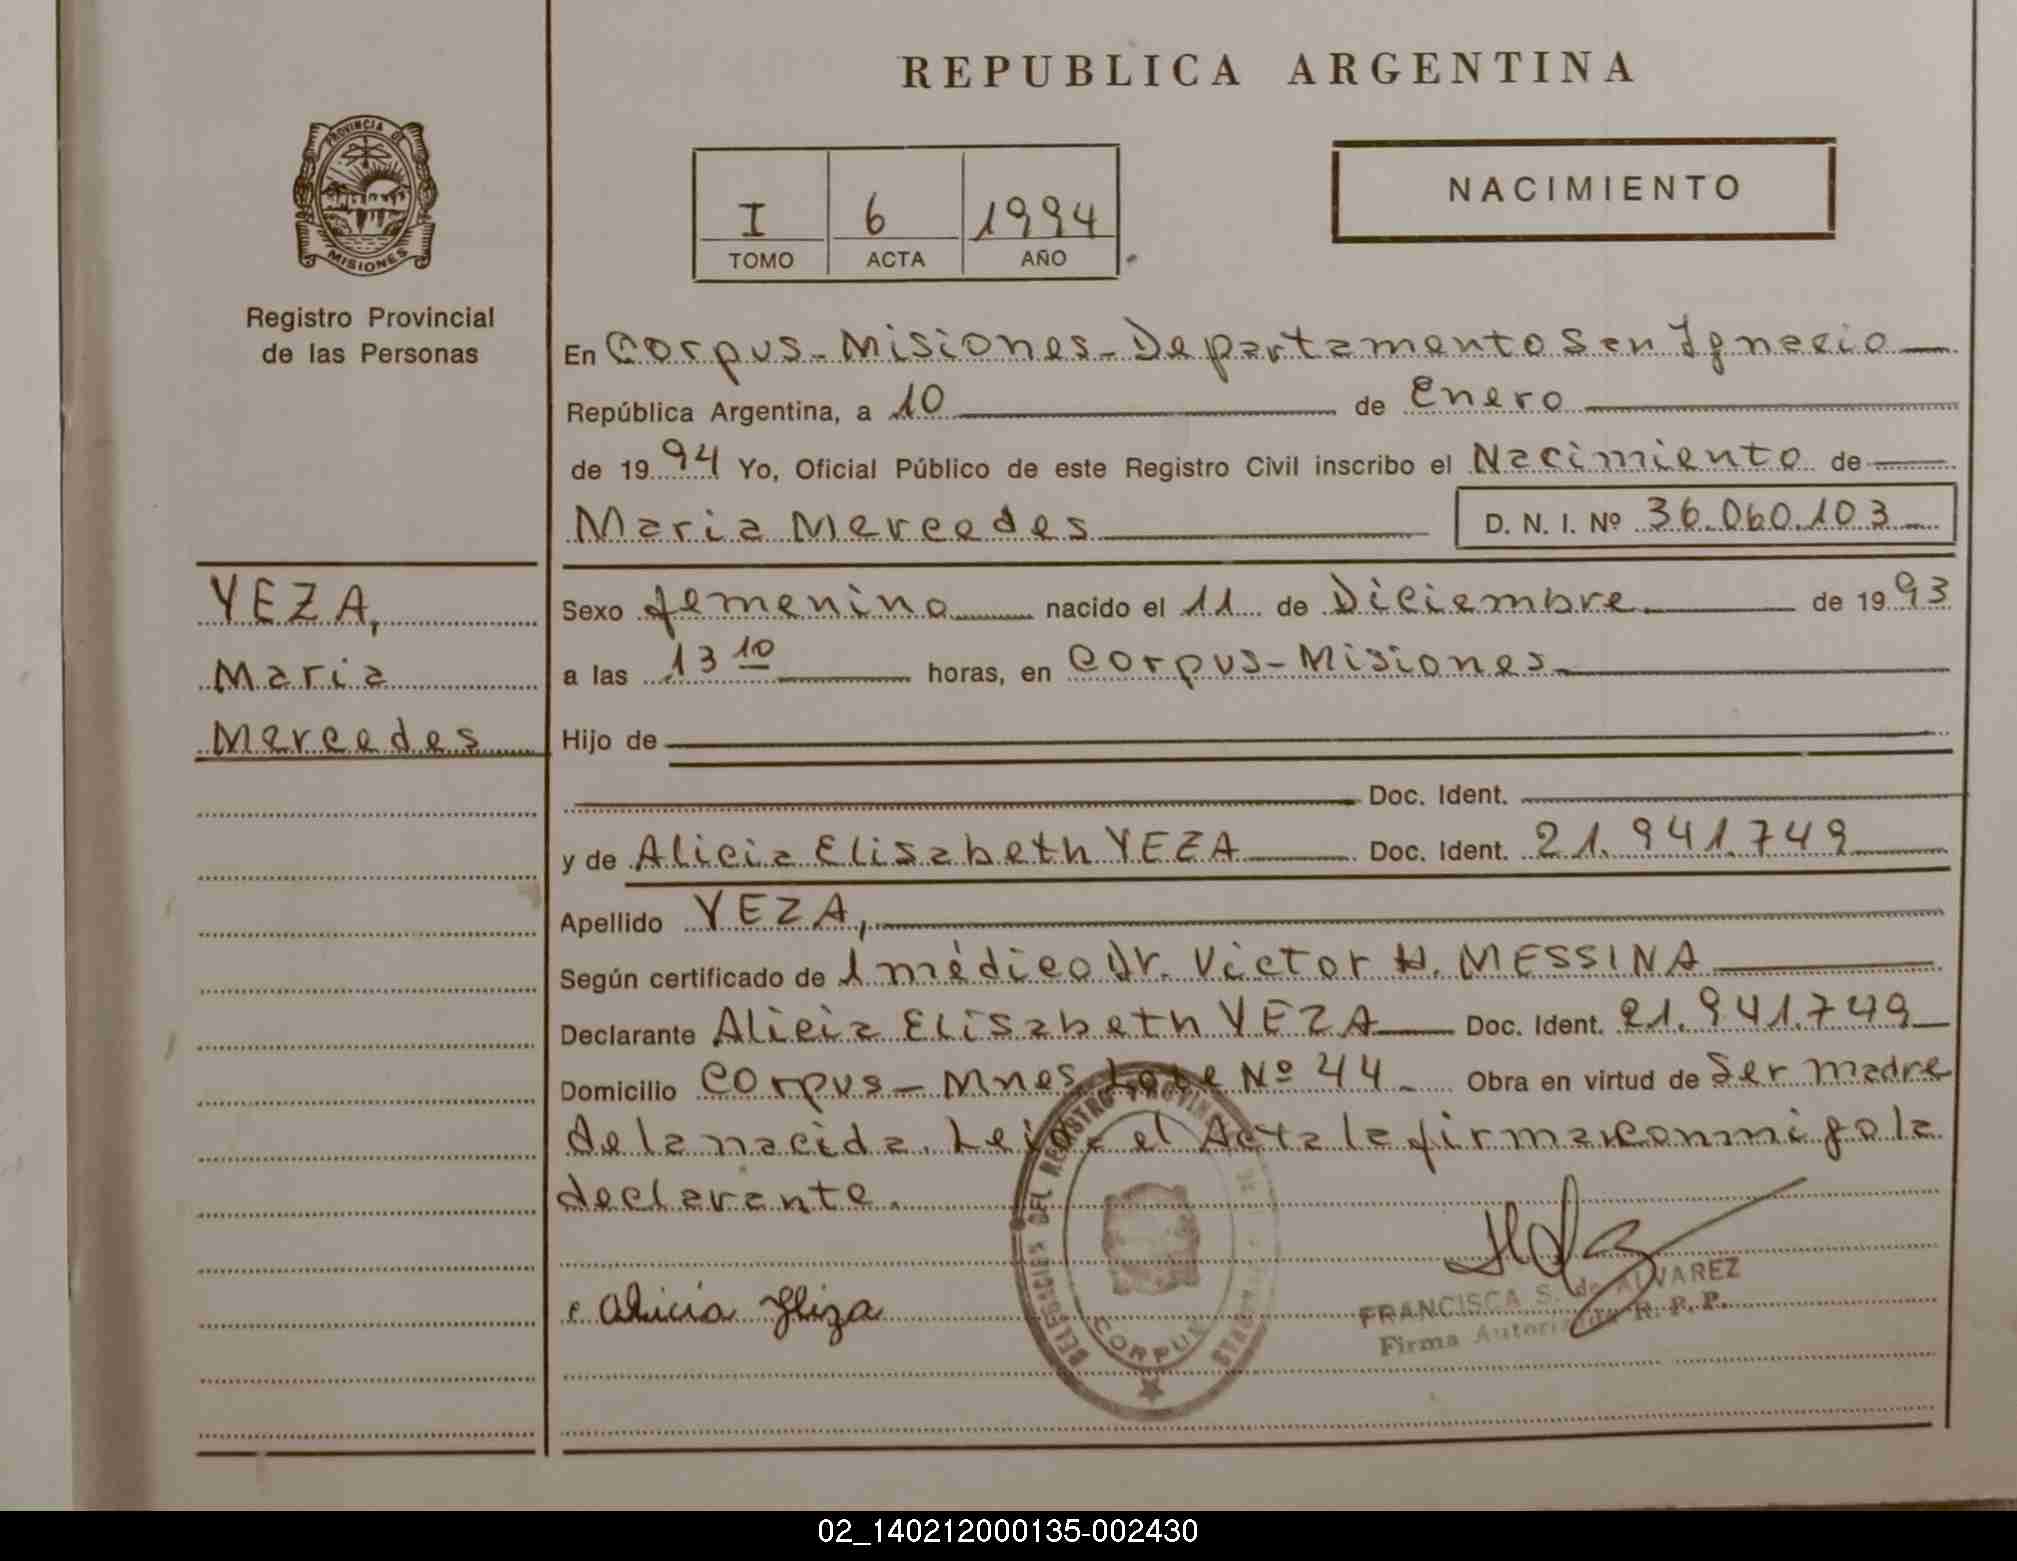 REPUBLICA ARGENTINA
PROVINCIA DE
MISIONES
Registro Provincial
de las Personas
I 6 1994
TOMO ACTA AÑO
NACIMIENTO
En Corpus - Misiones - Departamento San Ignacio
República Argentina, a 10 de Enero
de 1994 Yo, Oficial Público de este Registro Civil inscribo el Nacimiento de
Maria Mercedes D. N. I. Nº 36.060.103
YEZA,
Maria
Mercedes
Sexo femenino nacido el 11 de Diciembre de 1993
a las 13 10 horas, en Corpus - Misiones
Hijo de
Doc. Ident.
y de Alicia Elisabeth YEZA Doc. Ident. 21.941.749
Apellido YEZA,
Según certificado de l médico Dr. Victor H. MESSINA
Declarante Alicia Elisabeth YEZA Doc. Ident. 21.941.749
Domicilio Corpus - Mnes Lote Nº 44 Obra en virtud de Ser madre
de la nacida. Leida el Acta la firma conmigo la
declarante.
Alicia
DEL REGISTRO
CORPUS
FRANCISCA S. de ALVAREZ
Firma Autorizada R. P. P.
02_140212000135-002430